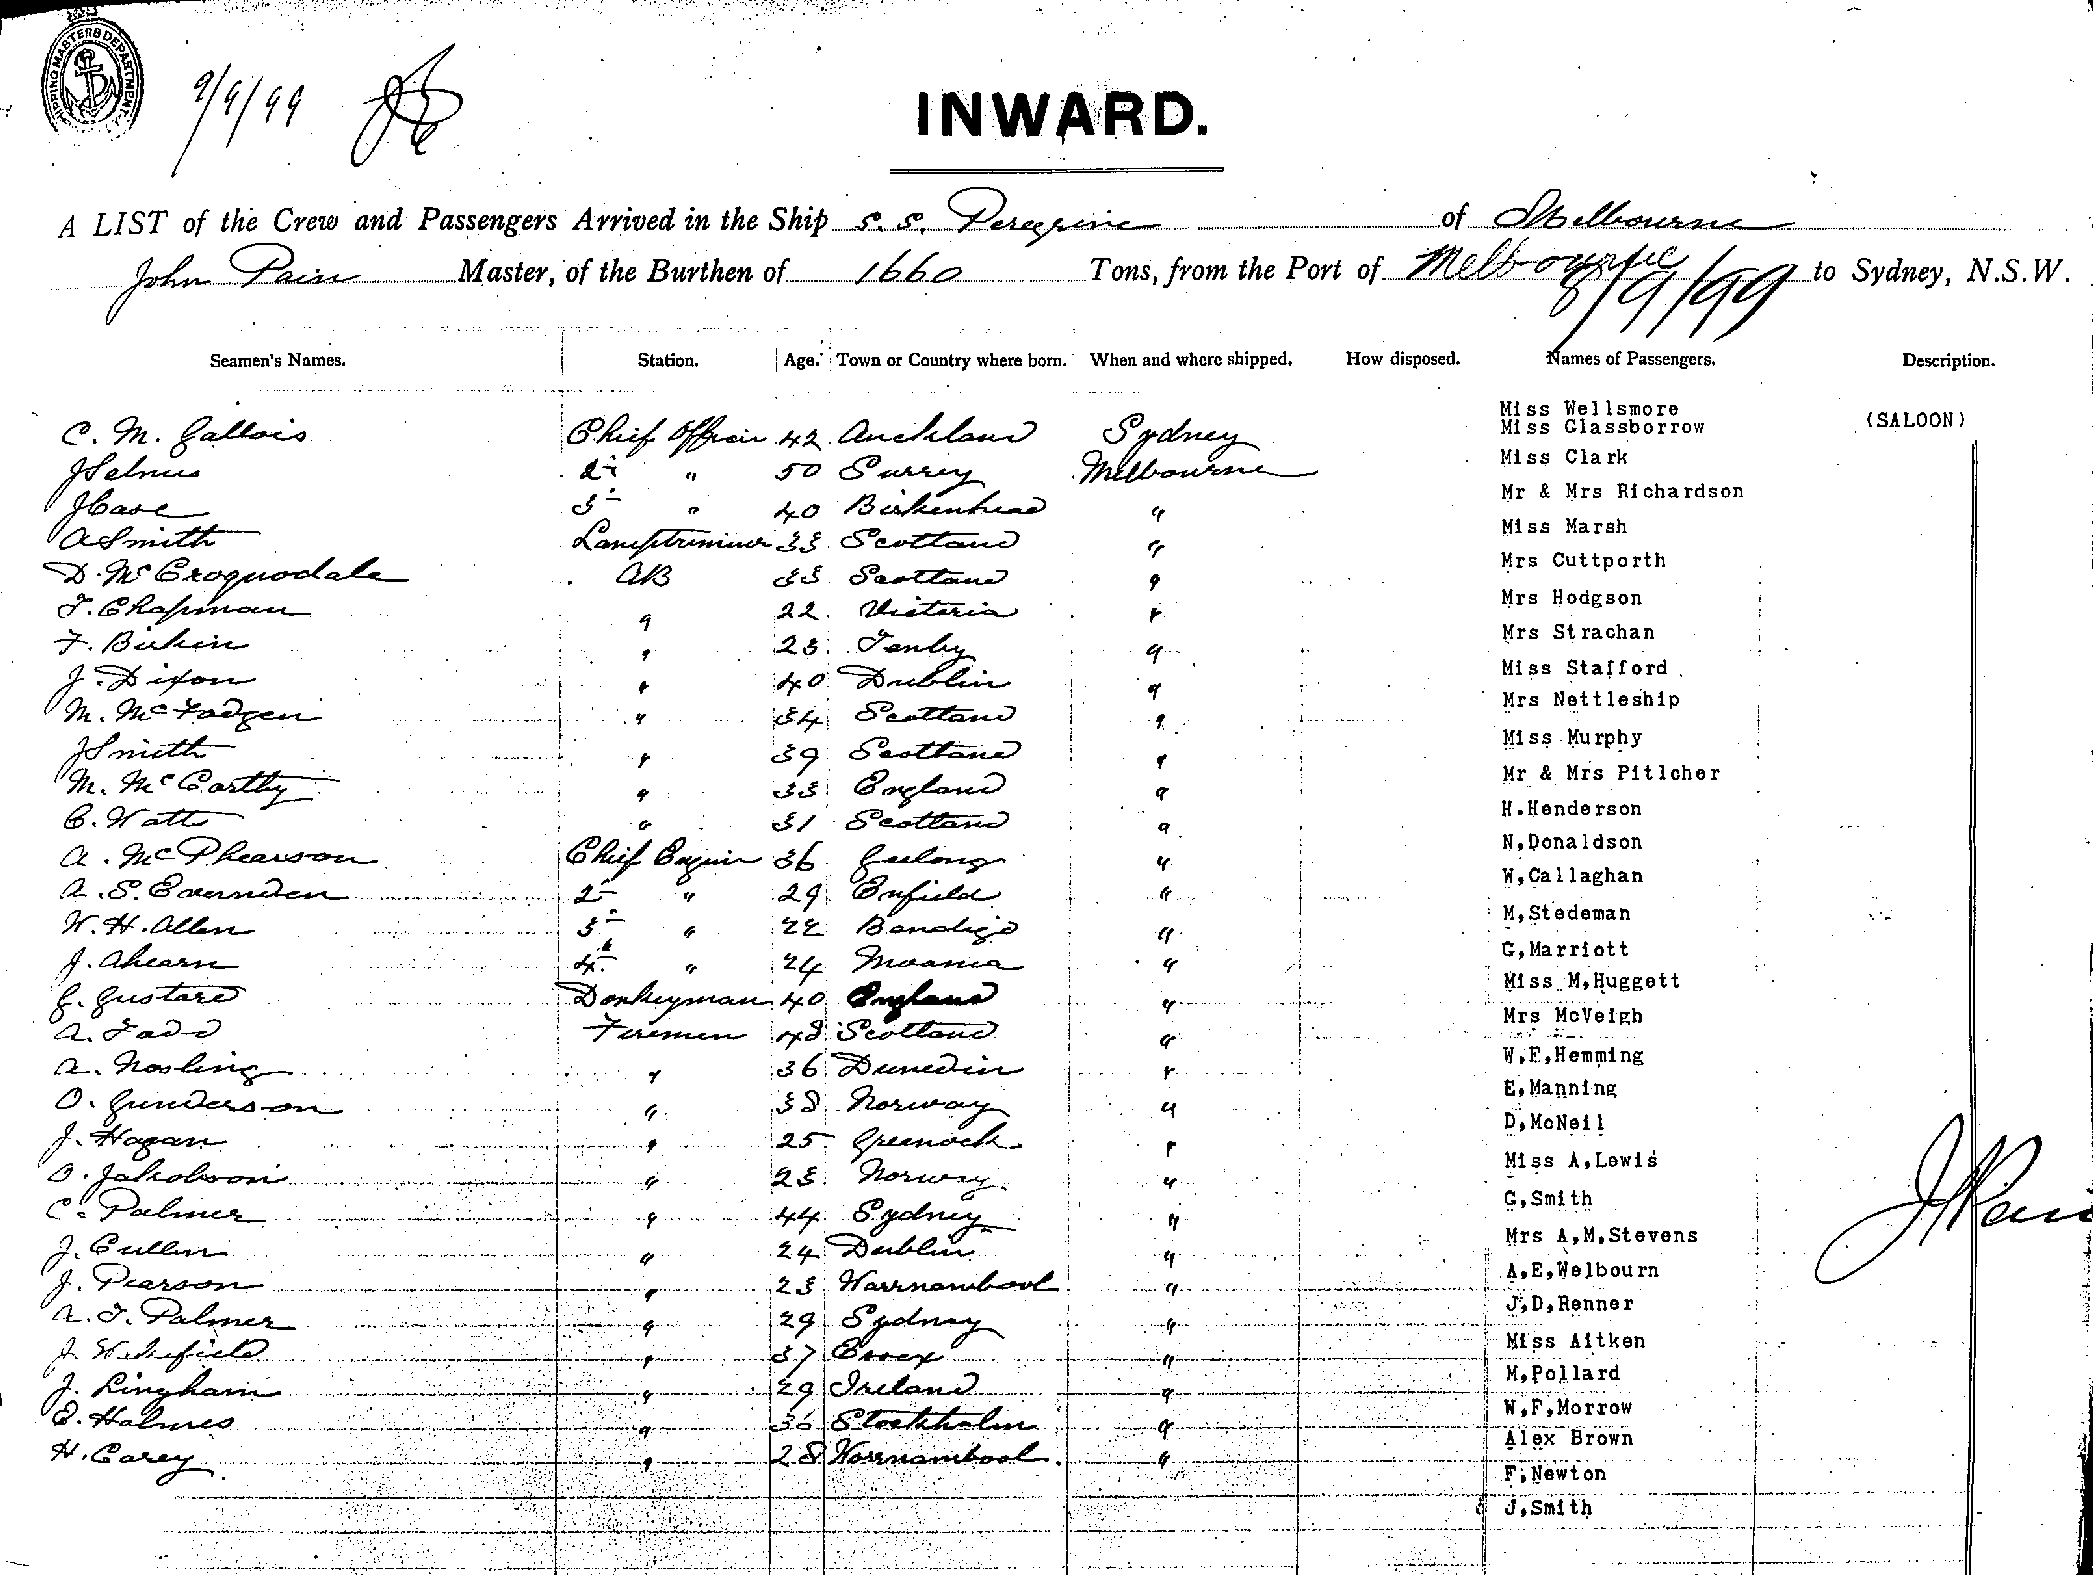 SHIPPING MASTERS DEPARTMENT
9/9/99
INWARD.
A LIST of the Crew and Passengers Arrived in the Ship S.S. Peregrine of Melbourne
John Pain Master, of the Burthen of 1660 Tons, from the Port of Melbourne 8/9/99 to Sydney, N.S.W.
Seamen's Names. Station. Age. Town or Country where born. When and where shipped. How disposed. Names of Passengers. Description.
Miss Wellsmore
C. M. Gallois Chief Officer 42 Auckland Sydney Miss Glassborrow (SALOON)
J Selmes 2nd " 50 Surrey Melbourne Miss Clark
J Case 3 " 40 Birkenhead " Mr & Mrs Richardson
A Smith Lamptrimmer 33 Scotland " Miss Marsh
D. McCroquodale AB 33 Scotland " Mrs Cuttporth
T. Chapman " 22 Victoria " Mrs Hodgson
F. Birkin " 23 Tenby " Mrs Strachan
J. Dixon " 40 Dublin " Miss Stafford
M. McFadgen " 34 Scotland " Mrs Nettleship
J Smith " 39 Scotland " Miss Murphy
M. McCarthy " 33 England " Mr & Mrs Pitlcher
C. Watt " 31 Scotland " H.Henderson
A. McPhearson Chief Engin 36 Geelong " N,Donaldson
A. S. Evernden 2 " 29 Enfield " W,Callaghan
W. H. Allen 3 " 22 Bendigo " M,Stedeman
J. Ahearn 4 " 24 Moama " G,Marriott
G. Gustard Donkeyman 40 England " Miss M,Huggett
A. Tadd Firemen 48 Scotland " Mrs McVeigh
A. Nosling " 36 Dunedin " W,E,Hemming
O. Gunderson " 38 Norway " E,Manning
J. Hagan " 25 Greenock " D,McNeil
O. Jakobson " 23 Norway " Miss A,Lewis
C. Palmer " 44 Sydney " G,Smith
J. Cullen " 24 Dublin " Mrs A,M,Stevens
J. Pearson " 23 Warrnambool " A,E,Welbourn
A. T. Palmer " 29 Sydney " J,D,Renner
J. Wakefield " 37 Essex " Miss Aitken
J. Lingham " 29 Ireland " M,Pollard
E. Holmes " 36 Stockholm " W,F,Morrow
H. Carey " 28 Warrnambool " Alex Brown
F,Newton
J,Smith
J Pain